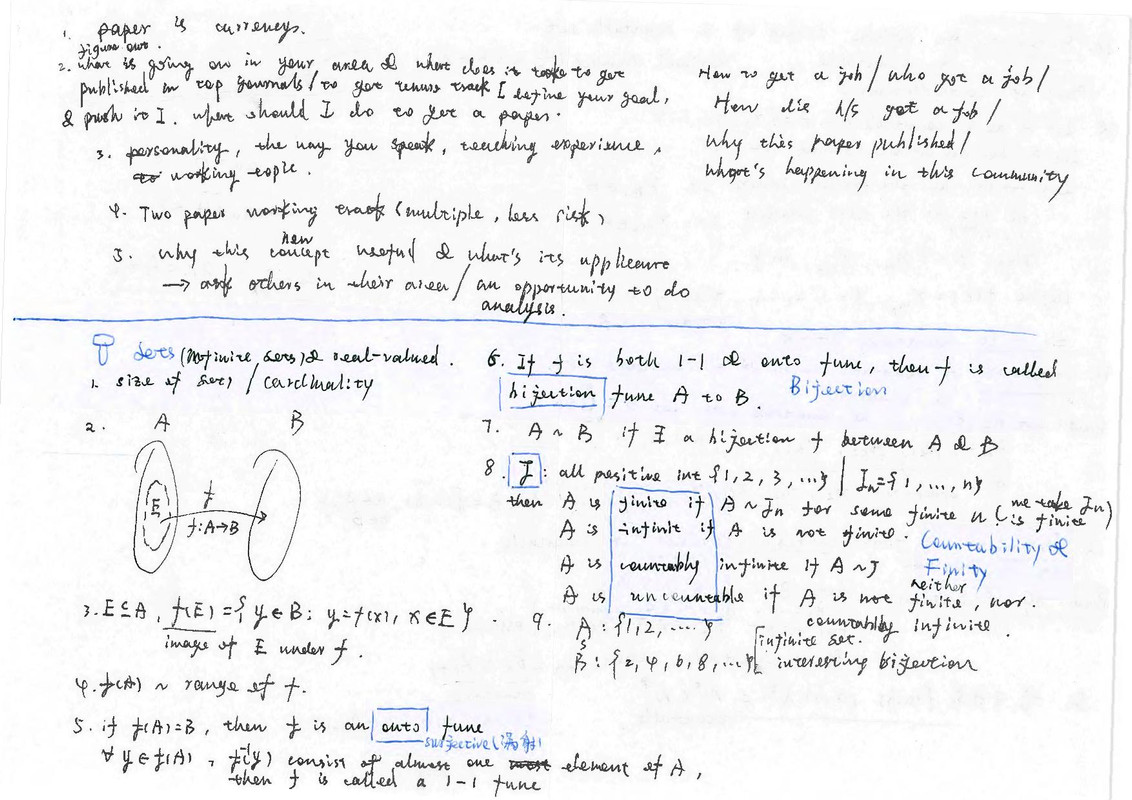 1. paper is currency.
figure out.
2. what is going on in your area & what does it take to get
published in top journals / to get tenure track I define your goal,
& push it I. what should I do to get a paper.
3. personality, the way you speak, teaching experience,
working topic.
4. Two paper working track (multiple, less risk)
new
5. why this concept useful & what's its
→ ask others in their area / an opportunity to do
analysis.
How to get a job / who got a job /
How did h/s get a job /
why this paper published /
what's happening in this community
Sets (infinite sets) & real-valued.
1. size of set / cardinality
2. A B
E
f
f: A→B
3. E⊆A, f(E) = { y∈B; y=f(x), x∈E }.
image of E under f.
4. f(A) ~ range of f.
5. if f(A)=B, then f is an onto func
surjective (满射)
∀ y∈f(A), f⁻¹(y) consist of almost one element of A,
then f is called a 1-1 func
6. If f is both 1-1 & onto func, then f is called
bijection func A to B. Bijection
7. A ~ B if ∃ a bijection f between A & B
8. J: all positive int {1, 2, 3, ...} | Jn={1, ..., n}
then A is finite if A ~ Jn for some finite n (we take Jn is finite)
A is infinit if A is not finite. Countability &
A is countably infinite if A ~ J Finity
A is uncountable if A is not finite, nor.
neither
countably infinite.
9. A: {1, 2, ....}
S
B: {2, 4, 6, 8, ...} [infinite set.
interesting bijection